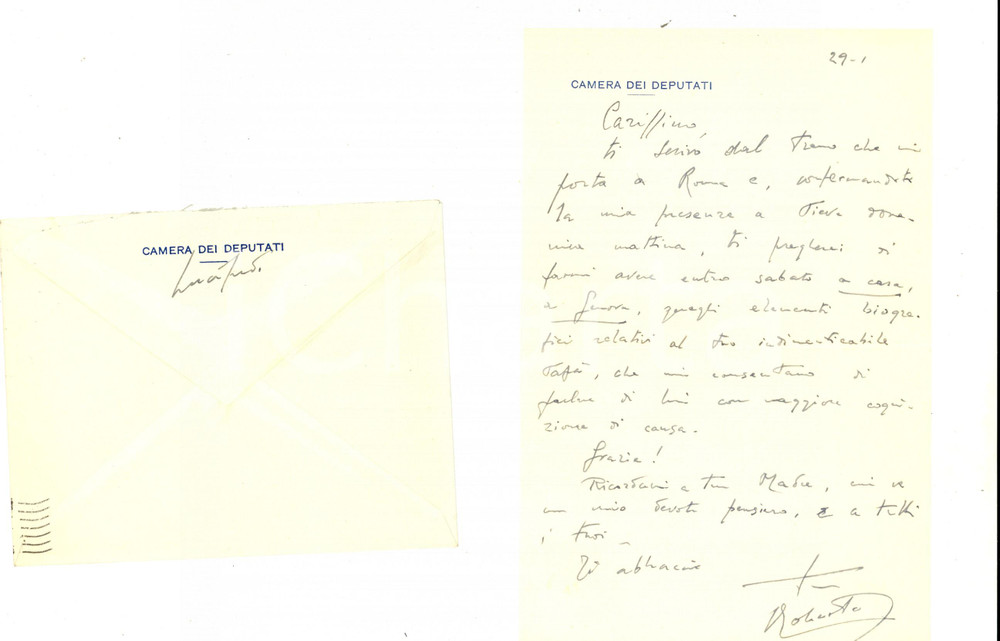 CAMERA DEI DEPUTATI
29-1
CAMERA DEI DEPUTATI
Carissimo,
ti scrivo dal treno che mi
porta a Roma e, confermandoti
la mia presenza a Pieve dome-
nica mattina, ti pregherei di
farmi avere entro sabato a casa,
a Genova, quegli elementi biogra-
fici relativi al tuo indimenticabile
Papà, che mi consentano di
parlare di lui con maggiore cogni-
zione di causa.
Grazie!
Ricordami a tua Madre, cui va
un mio devoto pensiero, e a tutti
i tuoi _
Ti abbraccio
tuo
Roberto